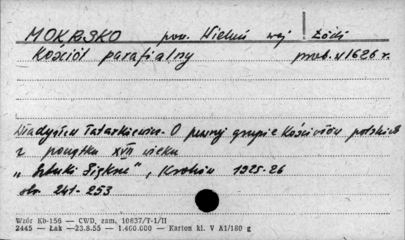 MOKRSKO pow. Wieluń woj. Łódź
Kościół parafialny prob. u 1626 r.
Władysław Tatarkiewicz. O pewnej grupie Kościołów polskich
z początku XVII wieku
„Sztuki Piękne", Kraków 1925-26
str. 241-253
Wzór Kb-156 — CWD, zam. 10837/T-1/II
2445 — Łak —23.8.55 — 1.400.000 — Karton kl. V A1/180 g